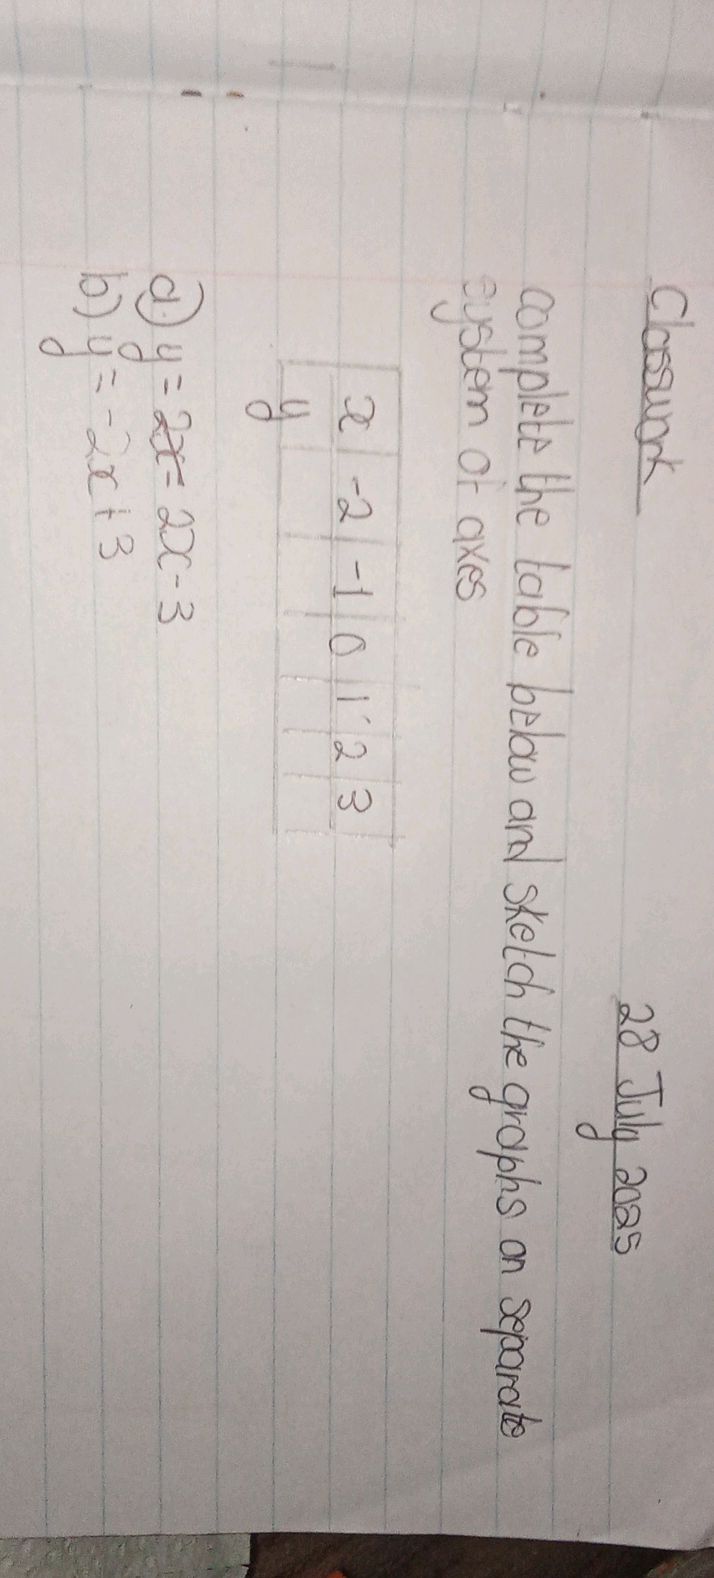 Classwork
28 July 2025
complete the table below and sketch the graphs on separate
system of axes
x -2 -1 0 1 2 3
y
a) y = 2x = 2x - 3
b) y = -2x + 3